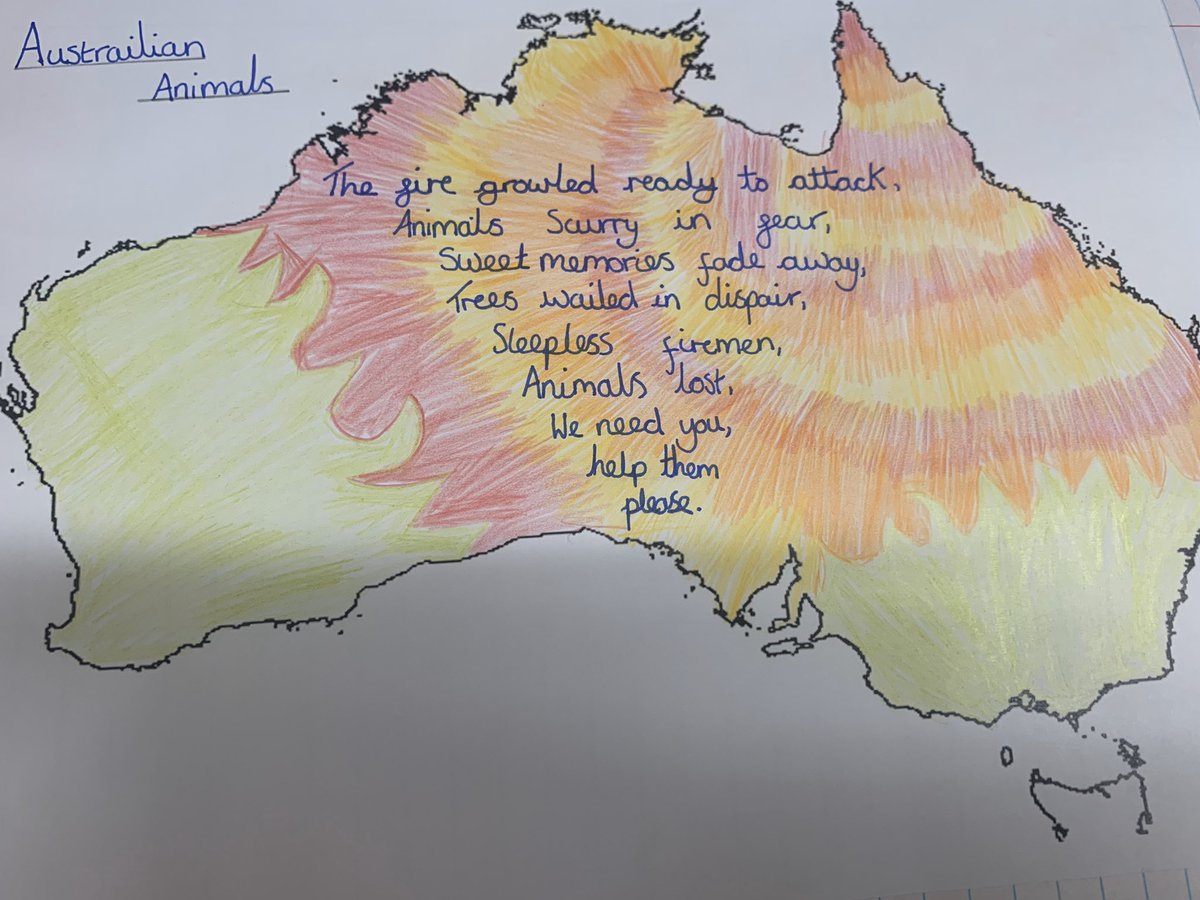 Austrailian
Animals
The fire growled ready to attack,
Animals Scurry in fear,
Sweet memories fade away,
Trees wailed in dispair,
Sleepless firemen,
Animals lost,
We need you,
help them
please.